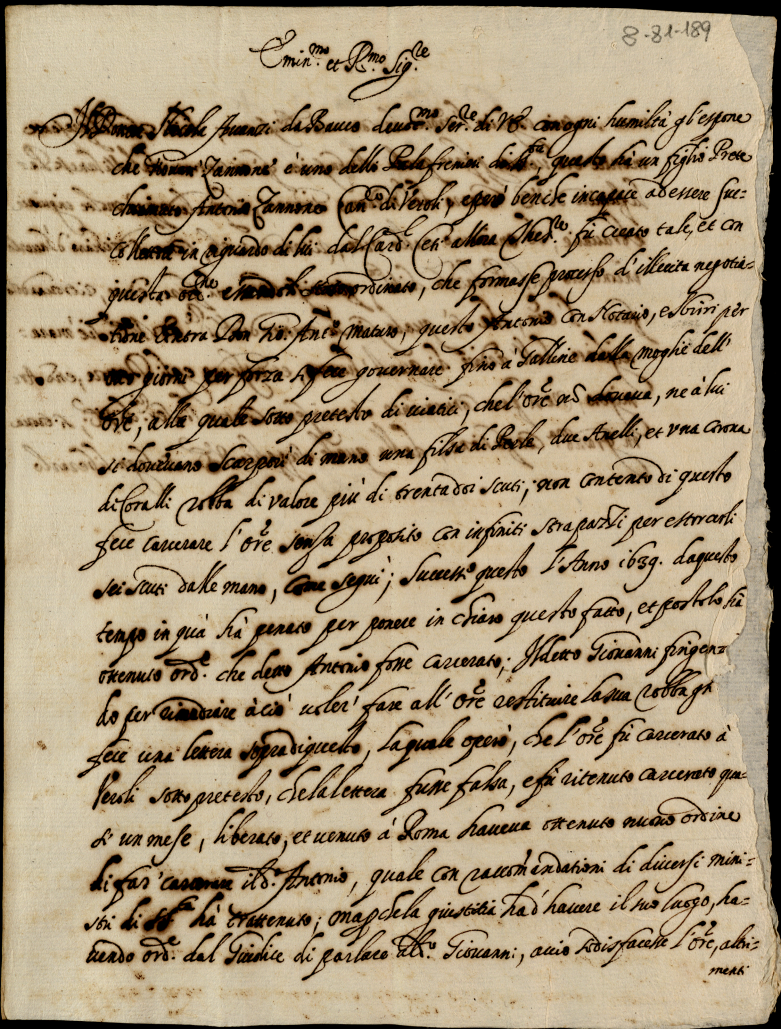 8-81-189
Emin.mo et R.mo Sig.re
Nicola Auanzi da Bauco deuot.mo Ser.re di V.E. con ogni humiltà gl'espone
che Zannone è uno delli Palafrenieri di questo hà un figlio Prete
chiamato Antonio Zannone Can.co di Veroli, e però benche incapace ad essere Sue-
collettore in riguardo di lui dal Card. allora fù creato tale, et con
questa ordinato, che formasse processo d'illecita negotia-
tione contra Don Gio: Ant.o maturo, questo Antonio con Notaio, e sbirri per
otto giorni per forza si fece gouernare fino à Galline dalla moglie dell'
Ore, alla quale sotto pretesto di uiatici, che l'Ore nō doueua, ne à lui
si doueuano scarporì di mano una filsa di Perle, due Anelli, et vna Corona
di Coralli robba di valore più di trentadoi scuti; non contento di questo
fece carcerare l'Ore senza proposito con infiniti strapazzi per estorcerli
sei scuti dalle mano, come seguì; Successo questo l'Anno 1639. da questo
tempo in quà hà penato per ponere in chiaro questo fatto, et postolo hà
ottenuto ord.e che detto Antonio fosse carcerato; Il detto Giouanni fingen-
do per rimediare à ciò uoler' fare all' Ore restituire la sua robba gli
fece una lettera sopra di questo, la quale operò, che l'Ore fù carcerato à
Veroli sotto pretesto, che la lettera fusse falsa, e fù ritenuto carcerato qua-
si un mese, liberato, et uenuto à Roma haueua ottenuto nuouo ordine
di far' carcerare il d.o Antonio, quale con raccomandationi di diuersi mini-
stri di hà trattenuto; ma perche la giustitia ha d'hauere il suo luogo, ha-
uendo ord.e dal Giudice di parlare al d.o Giouanni, acciò sodisfacesse l'Ore, altri-
menti